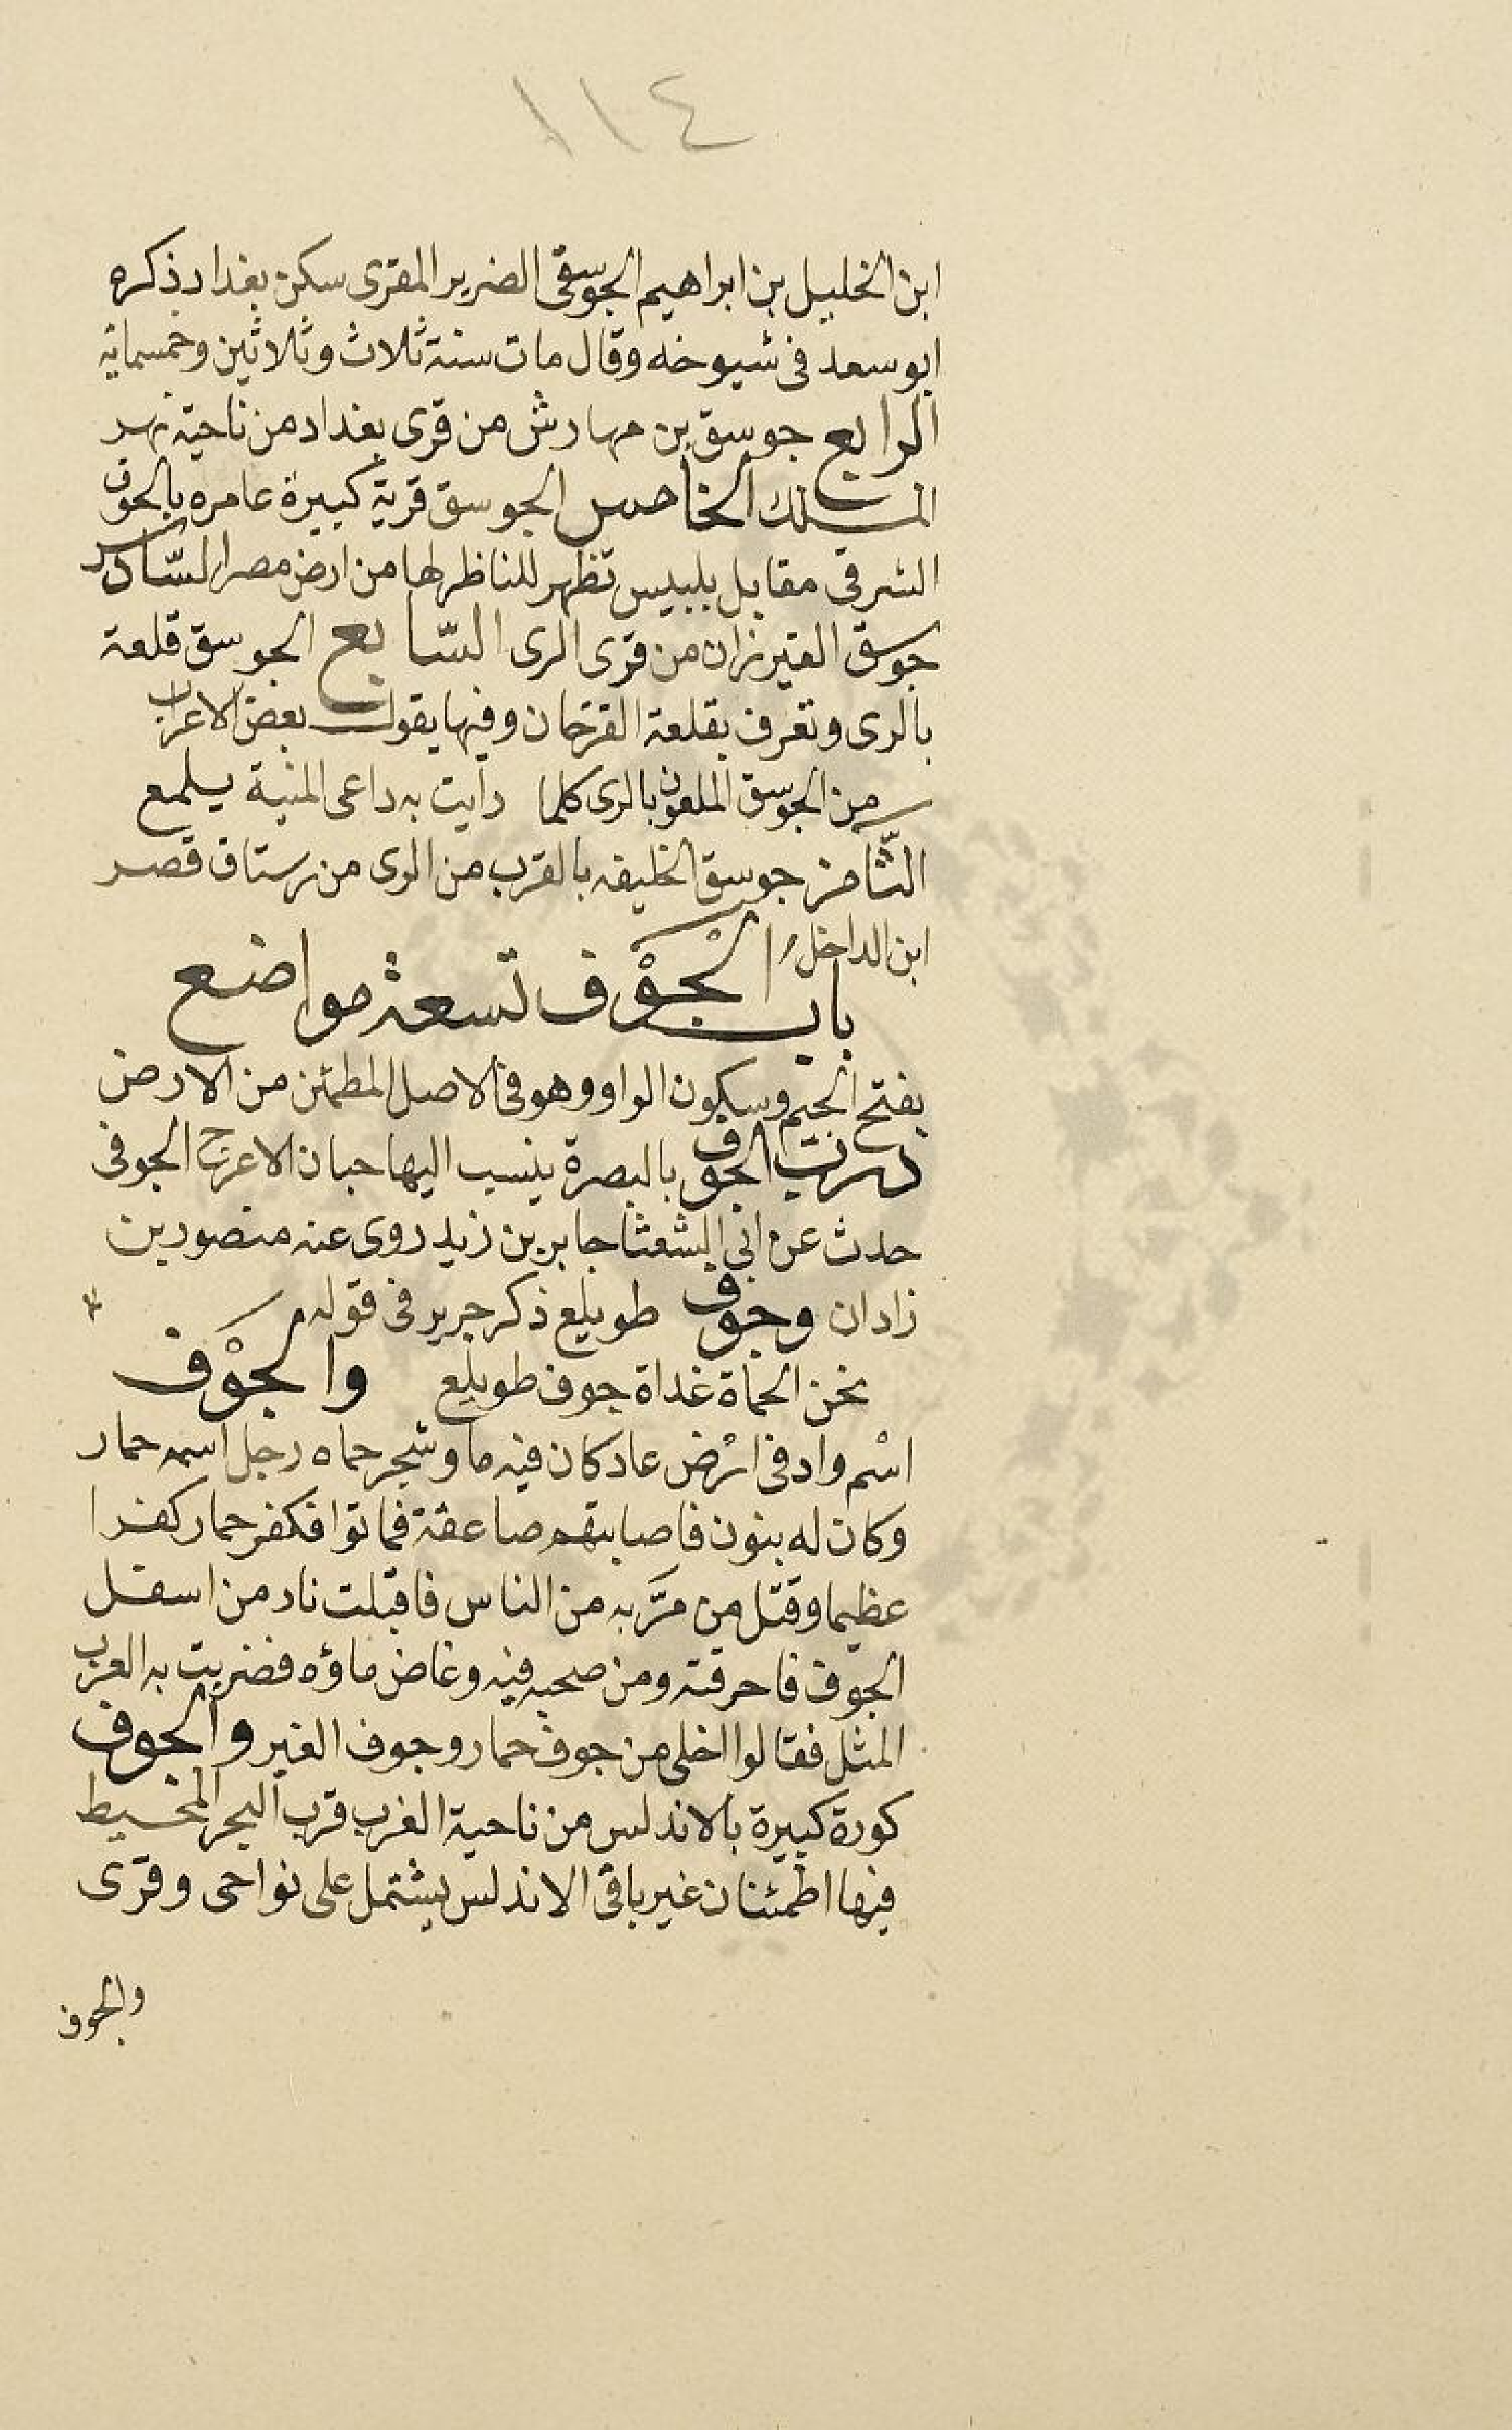 ١١٤
ابن الخليل بن ابراهيم الجوسقى الضرير المقرى سكن بغداد ذكره
ابو سعد فى شيوخه وقال مات سنة ثلاث وثلاثين وخمسماية
الرابع جوسق بن مهارش من قرى بغداد من ناحية نهر
الملك الخامس الجوسق قرية كبيرة عامره بالحوف
الشرقى مقابل بلبيس تظهر للناظر لها من ارض مصر السّادس
جوسق الفيرزان من قرى الرى السّابع الجوسق قلعة
بالرى وتعرف بقلعة الفرخان وفيها يقول بعض الاعراب
من الجوسق الملعون بالرى كلما رايت به داعى المنية يلمع
الثّامن جوسق الخليفه بالقرب من الرى من رستاق قصر
ابن الداخل
باب الجَوْف تسعة مواضع
بفتح الجيم وسكون الواو وهو فى الاصل المطمئن من الارض
درب الجوف بالبصرة ينسب اليها حبان الاعرج الجوفى
حدث عن ابى الشعثا جابر بن زيد روى عنه منصور بن
زادان وجوف طويلع ذكر جرير فى قوله
نحن الحماة غداة جوف طويلع والجَوْف
اسْم واد فى ارْض عاد كان فيه ما وشجر حماه رجل اسمه حمار
وكان له بنون فاصابتهم صاعقة فماتوا فكفر حمار كفرا
عظيما وقتل من مرَّ به من الناس فاقبلت نار من اسفل
الجوف فاحرقته ومن صحبه فيه وغاض ماؤه فضربت به العرب
المثل فقالوا اخلى من جوف حمار وجوف العير والجوف
كورة كبيرة بالاندلس من ناحية الغرب قرب البحر المحيط
فيها اطمئنان غير باقى الاندلس يشتمل على نواحى وقرى
والجوف